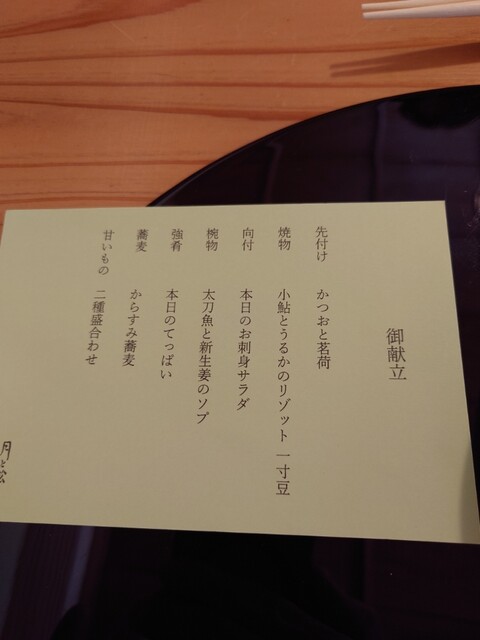 御献立
先付け かつおと茗荷
焼物 小鮎とうるかのリゾット 一寸豆
向付 本日のお刺身サラダ
椀物 太刀魚と新生姜のソプ
強肴 本日のてっぱい
蕎麦 からすみ蕎麦
甘いもの 二種盛合わせ